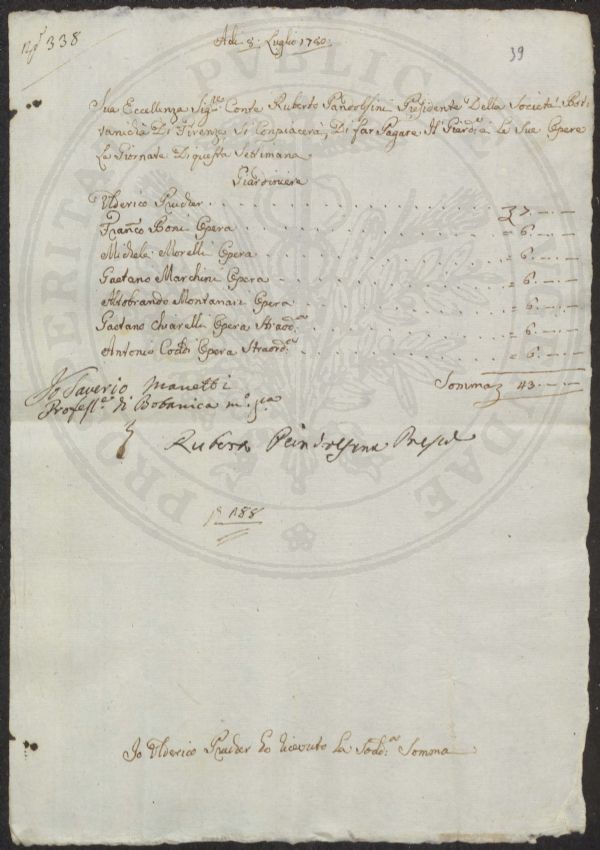 N.º 338
Adi 8: Luglio 1780:
39
Sua Eccellenza Sig.re Conte Ruberto Pandolfini Presidente Della Società Bot-
tanicha Di Firenze Si Conpiacerà, Di far Pagare Al Giardi.e Le Sue Opere
La Giornate Di questa Settimana
Giardiniere
Ulderico Pruder . . . 7 . — . —
Franc.o Boni Opera . . . = 6 . — . —
Michele Morelli Opera . . . = 6 . — . —
Gaetano Marchini Opera . . . = 6 . — . —
Aldobrando Montanari Opera . . . = 6 . — . —
Gaetano Chiarelli Opera Straord.ia . . . = 6 . — . —
Antonio Opera Straord.ia . . . = 6 . — . —
Somma 43 . — . —
Io Saverio Manetti
Profess.re di Botanica m.o p.a
Ruberto Pandolfini Presid
188
Io Ulderico Pruder ho riceuto la Sodd.a Somona
PROSPERITATI PUBLICAE AUGENDAE